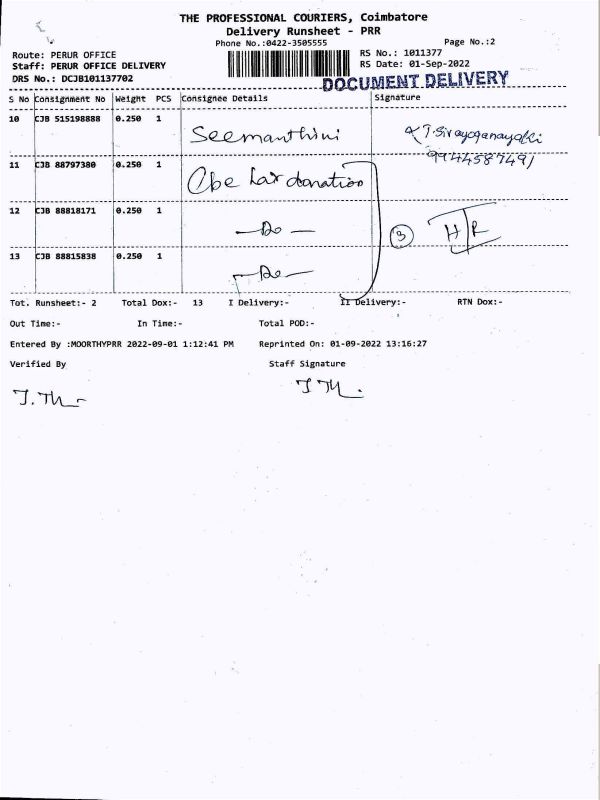 THE PROFESSIONAL COURIERS, Coimbatore
Delivery Runsheet - PRR
Phone No.:0422-3505555 Page No.:2
Route: PERUR OFFICE RS No.: 1011377
Staff: PERUR OFFICE DELIVERY RS Date: 01-Sep-2022
DRS No.: DCJB101137702 DOCUMENT DELIVERY
S No Consignment No Weight PCS Consignee Details Signature
10 CJB 515198888 0.250 1 Seemanthini
9944587491
11 CJB 88797380 0.250 1 donation
12 CJB 88818171 0.250 1 —Do— 3 HR
13 CJB 88815838 0.250 1 —Do—
Tot. Runsheet:- 2 Total Dox:- 13 I Delivery:- II Delivery:- RTN Dox:-
Out Time:- In Time:- Total POD:-
Entered By :MOORTHYPRR 2022-09-01 1:12:41 PM Reprinted On: 01-09-2022 13:16:27
Verified By Staff Signature